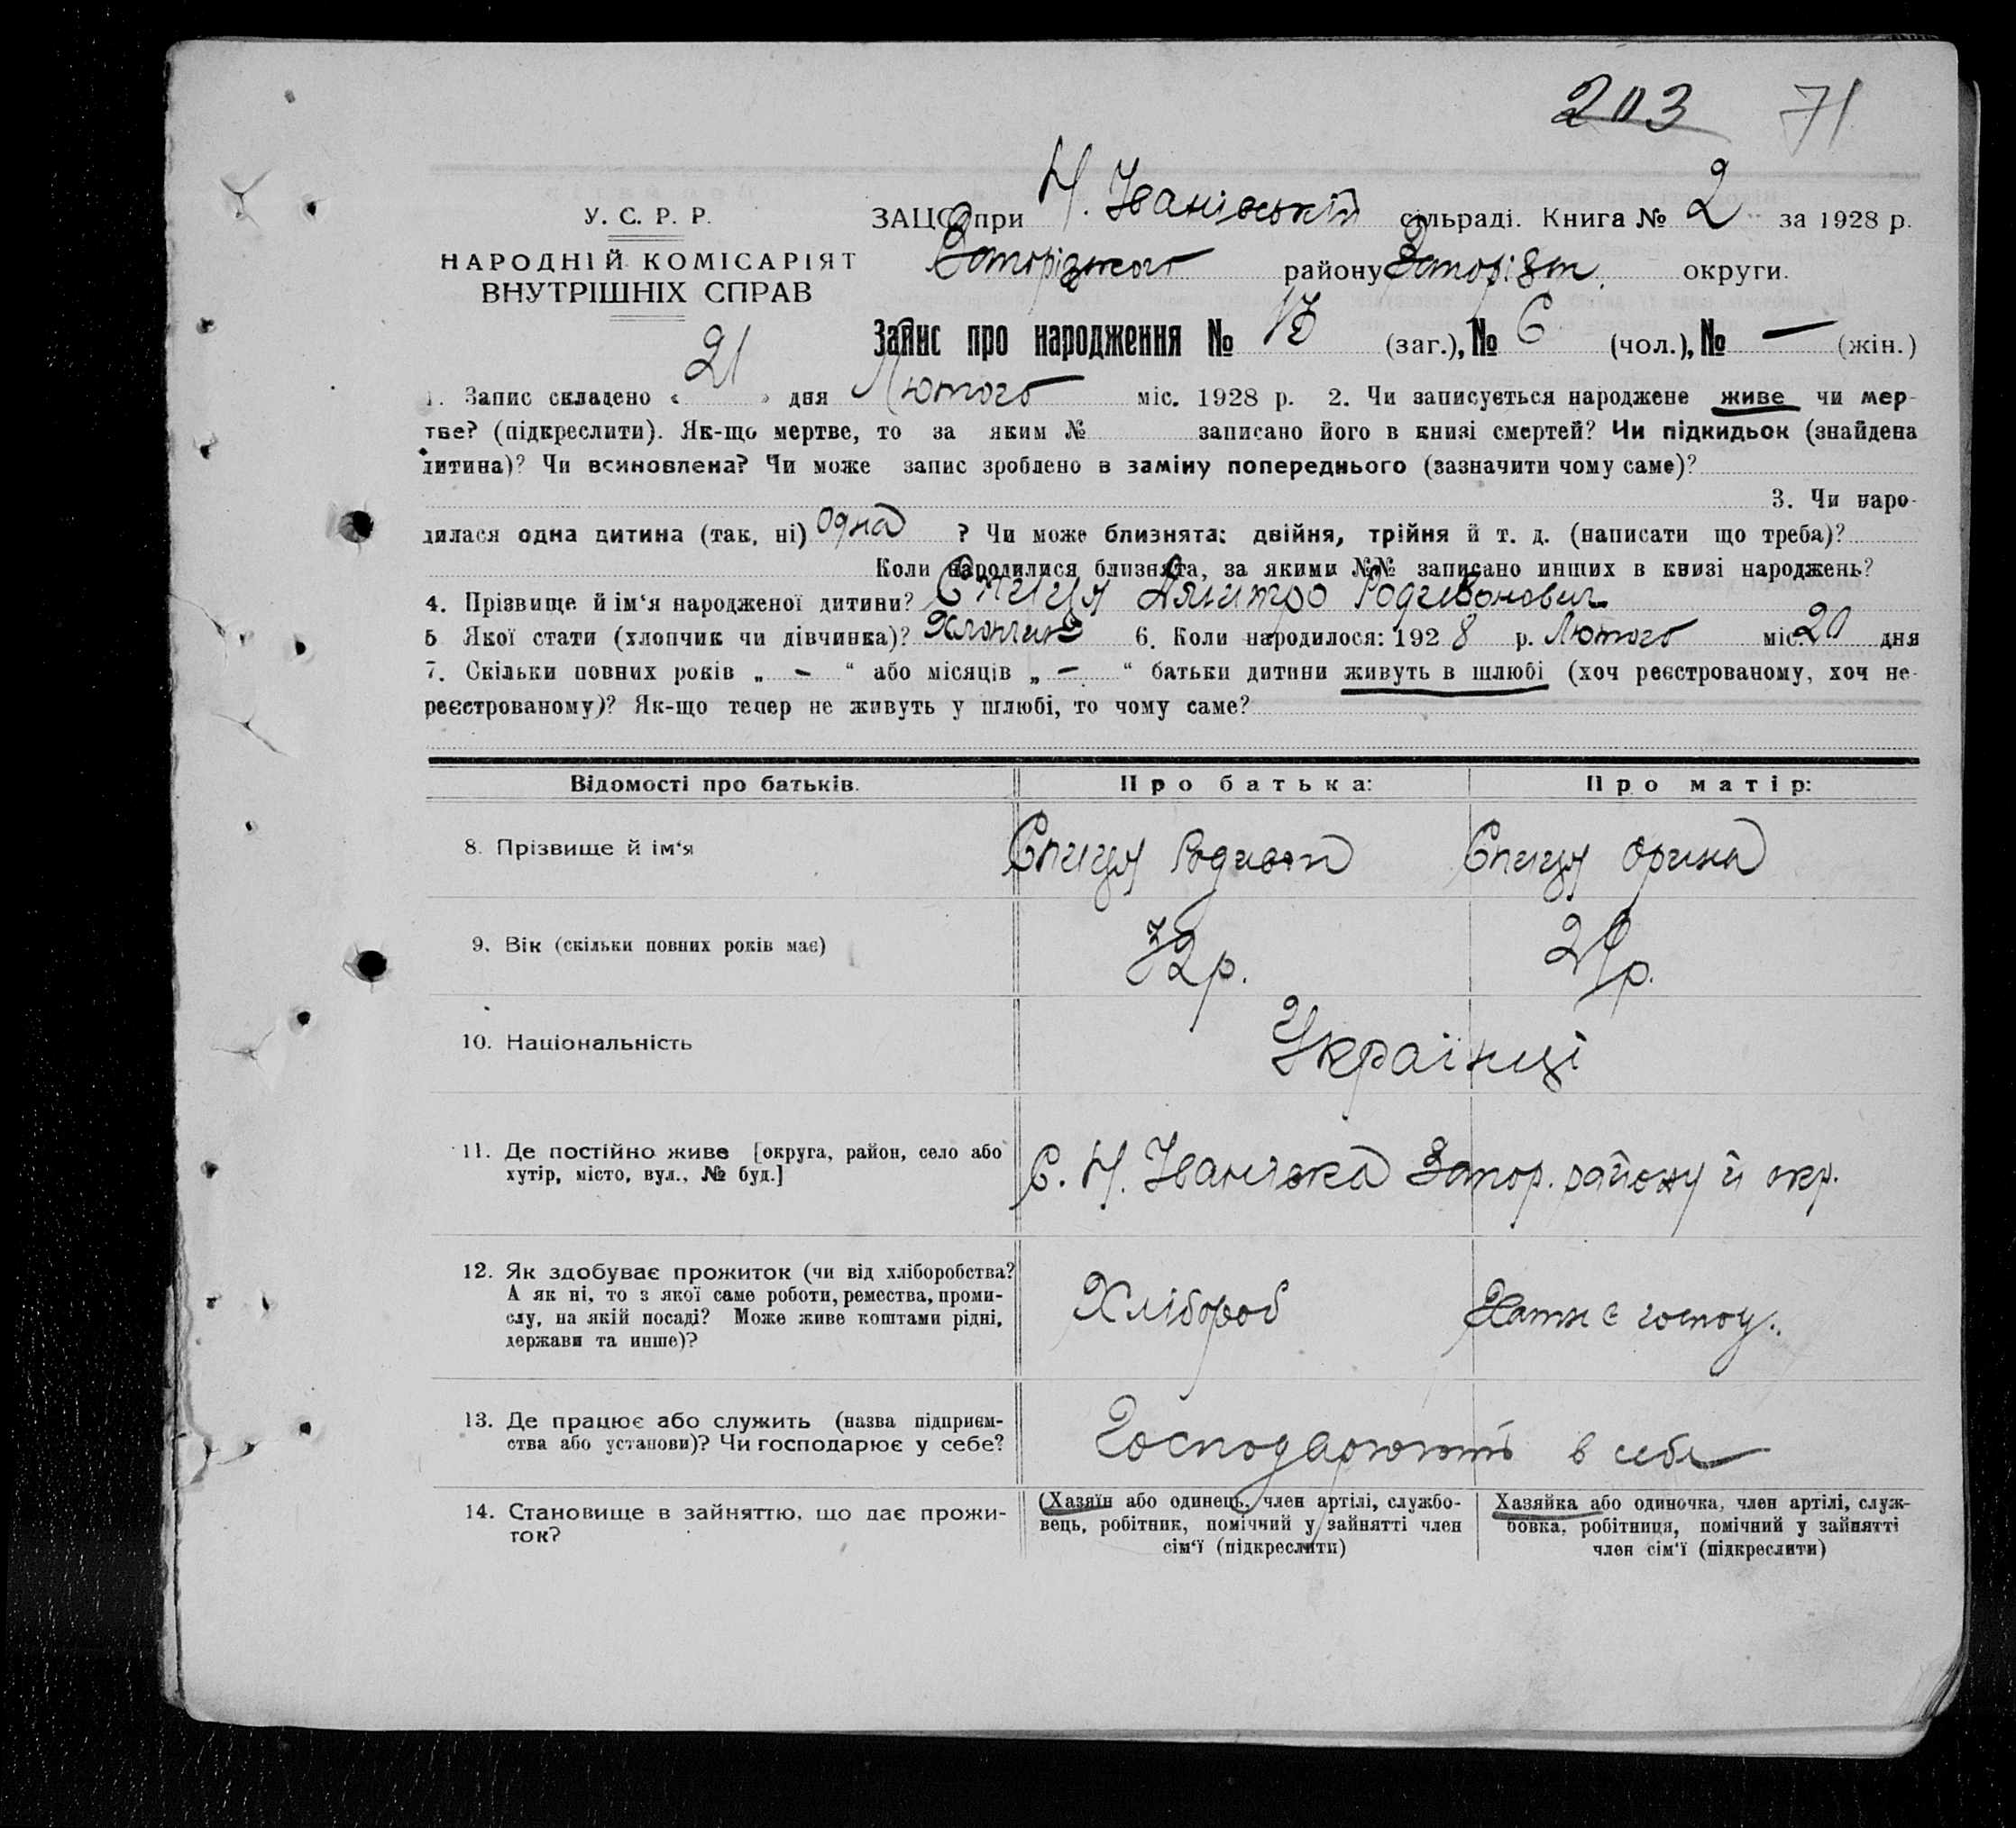 203 71
У. С. Р. Р.
НАРОДНІЙ КОМІСАРІЯТ
ВНУТРІШНІХ СПРАВ
ЗАЦС при Н. Іванівській сільраді. Книга № 2 за 1928 р.
Запорізького району Запоріз. округи.
Запис про народження № 13 (заг.), № 6 (чол.), № — (жін.)
1. Запис складено « 21 » дня Лютого міс. 1928 р. 2. Чи записується народжене живе чи мер-
тве? (підкреслити). Як-що мертве, то за яким № записано його в книзі смертей? Чи підкидьок (знайдена
дитина)? Чи всиновлена? Чи може запис зроблено в заміну попереднього (зазначити чому саме)?
3. Чи наро-
дилася одна дитина (так, ні) одна ? Чи може близнята: двійня, трійня й т. д. (написати що треба)?
Коли народилися близнята, за якими №№ записано инших в книзі народжень?
4. Прізвище й ім‘я народженої дитини? Спиця Дмитро Родивонович
5 Якої стати (хлопчик чи дівчинка)? Хлопчик 6. Коли народилося: 192 8 р. Лютого міс. 20 дня
7. Скільки повних років „ — “ або місяців „ — “ батьки дитини живуть в шлюбі (хоч реєстрованому, хоч не-
реєстрованому)? Як-що тепер не живуть у шлюбі, то чому саме?
Відомості про батьків. Про батька: Про матір:
8. Прізвище й ім‘я Спиця Родивон Спиця Орина
9. Вік (скільки повних років має) 32 р. 29 р.
10. Національність Українці
11. Де постійно живе [округа, район, село або
хутір, місто, вул., № буд.] С. Н. Іванівка Запор. району й окр.
12. Як здобуває прожиток (чи від хліборобства?
А як ні, то з якої саме роботи, ремества, проми-
слу, на якій посаді? Може живе коштами рідні,
держави та инше)? Хлібороб Хатнє господ.
13. Де працює або служить (назва підприєм-
ства або установи)? Чи господарює у себе? Господарюють в себе
14. Становище в зайняттю, що дає прожи-
ток?
(Хазяїн або одинець, член артілі, службо-
вець, робітник, помічний у зайнятті член
сім‘ї (підкреслити)
Хазяйка або одиночка, член артілі, служ-
бовка, робітниця, помічний у зайнятті
член сім‘ї (підкреслити)